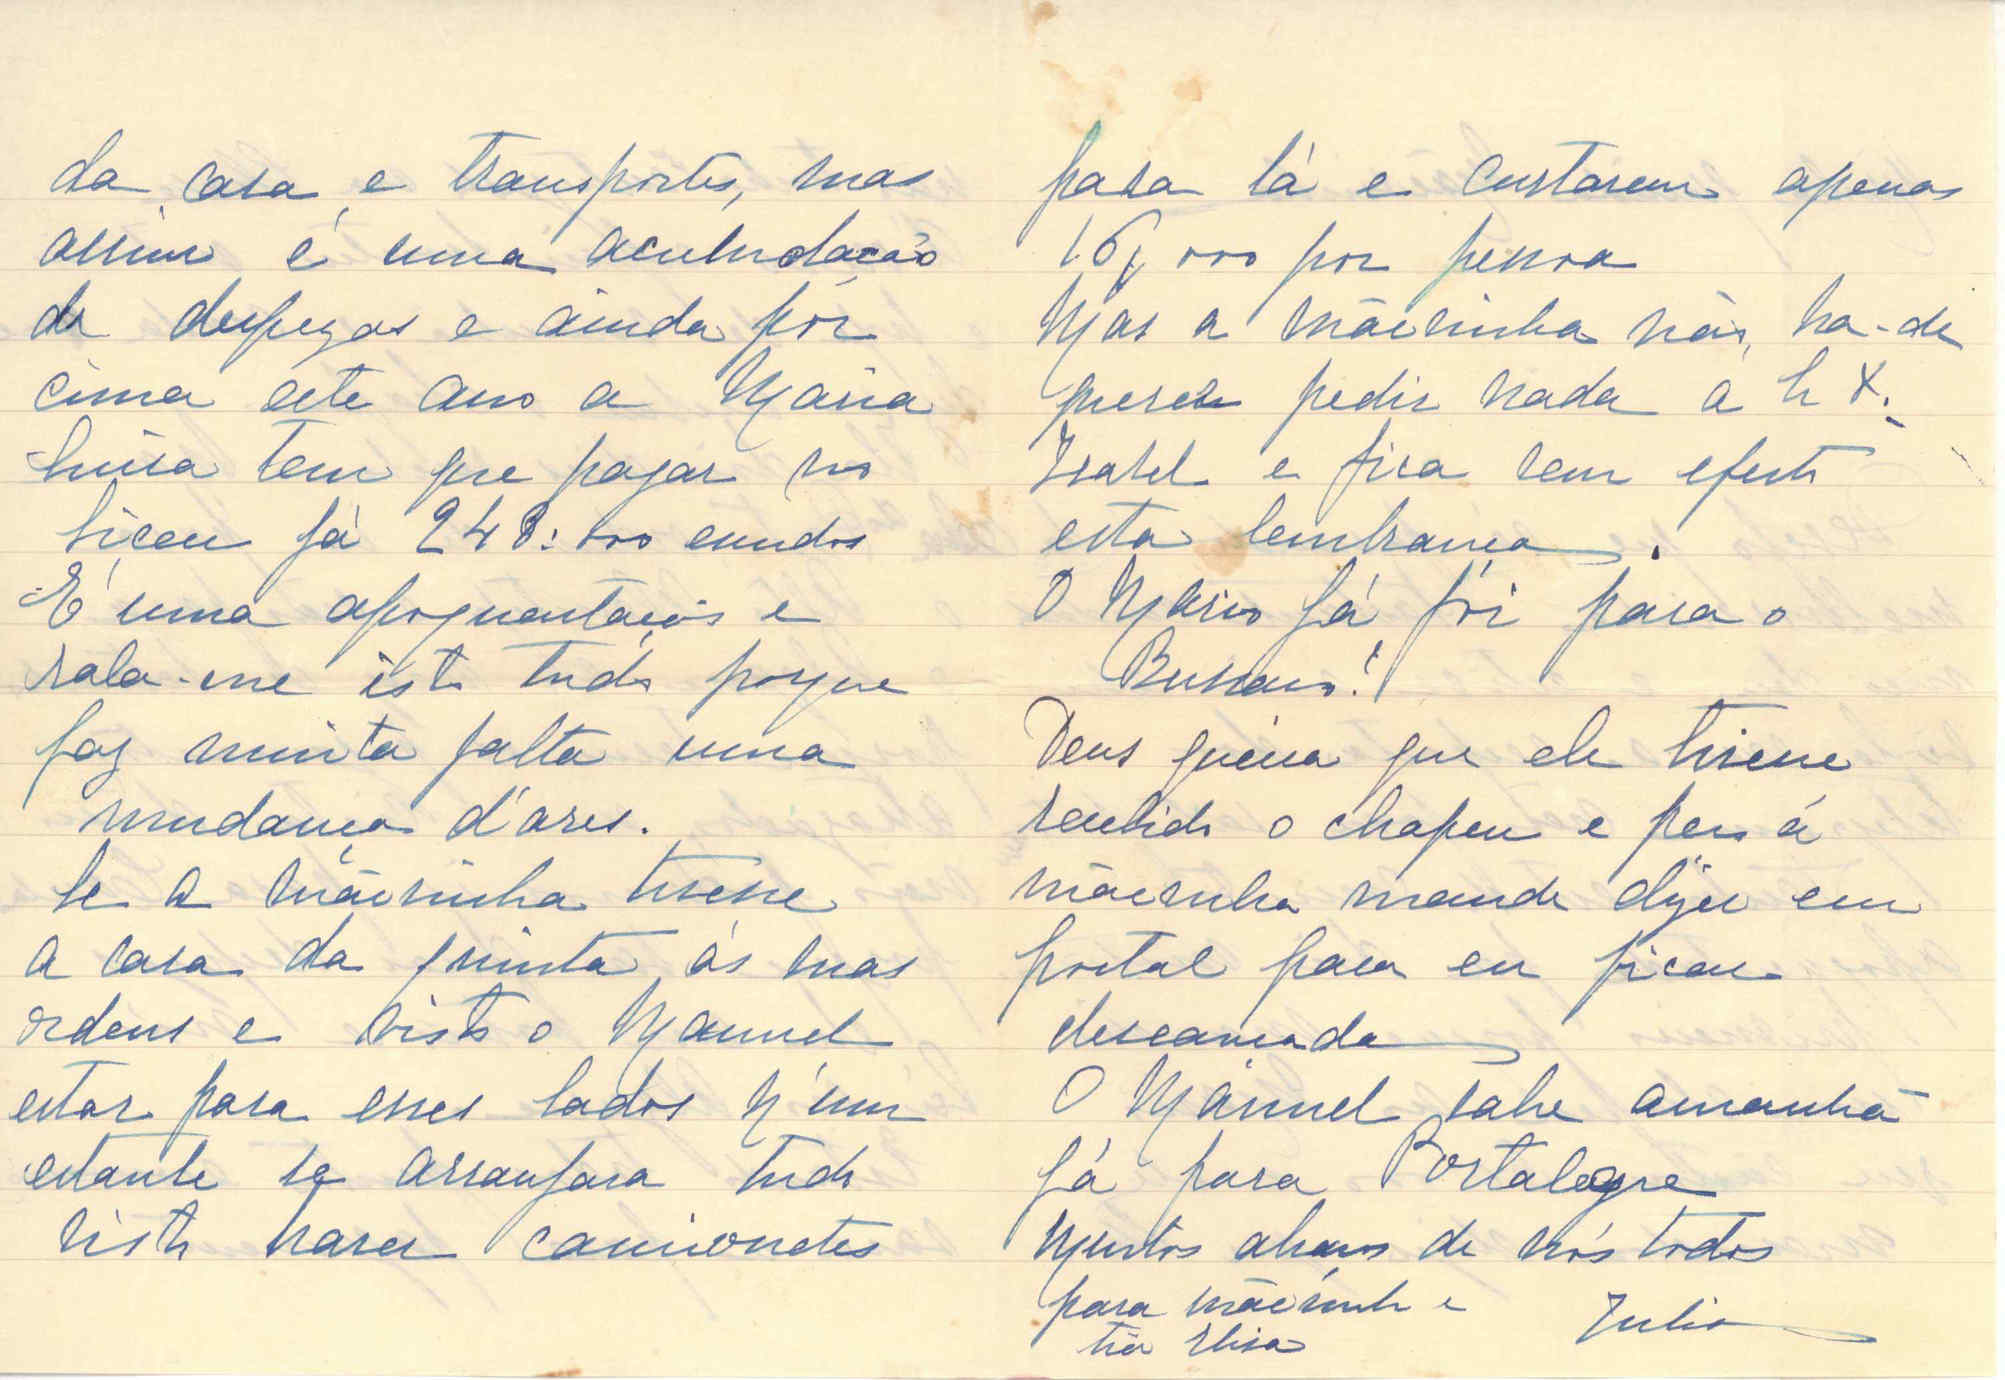 da casa e transportes, mas
assim é uma acumulação
de despezas e ainda pór
cima este ano a Maria
Luisa tem que pagar no
liceu já 248:000 escudos
É uma apoquentação e
rala-me isto tudo porque
faz muita falta uma
mudança d'ares.
Se a mãesinha tivesse
a casa da quinta ás suas
ordens e visto o Manuel
estar para esses lados n'um
estante se arranjara tudo
visto haver camionetes
para lá e custarem apenas
16$000 por pessoa
Mas a mãesinha não, ha-de
querer pedir nada á
Izabel e fica sem efeito
esta lembrança.
O Mario já fói para o
Bussaco!
Deus queira que ele tivesse
recebido o chapeu e peço á
mãesinha mande dizer em
postal para eu ficar
descançada
O Manuel sahe amanhã
já para Portalegre
Muitos abraços de nós todos
para mãesinha e
tia Elisa
Julia